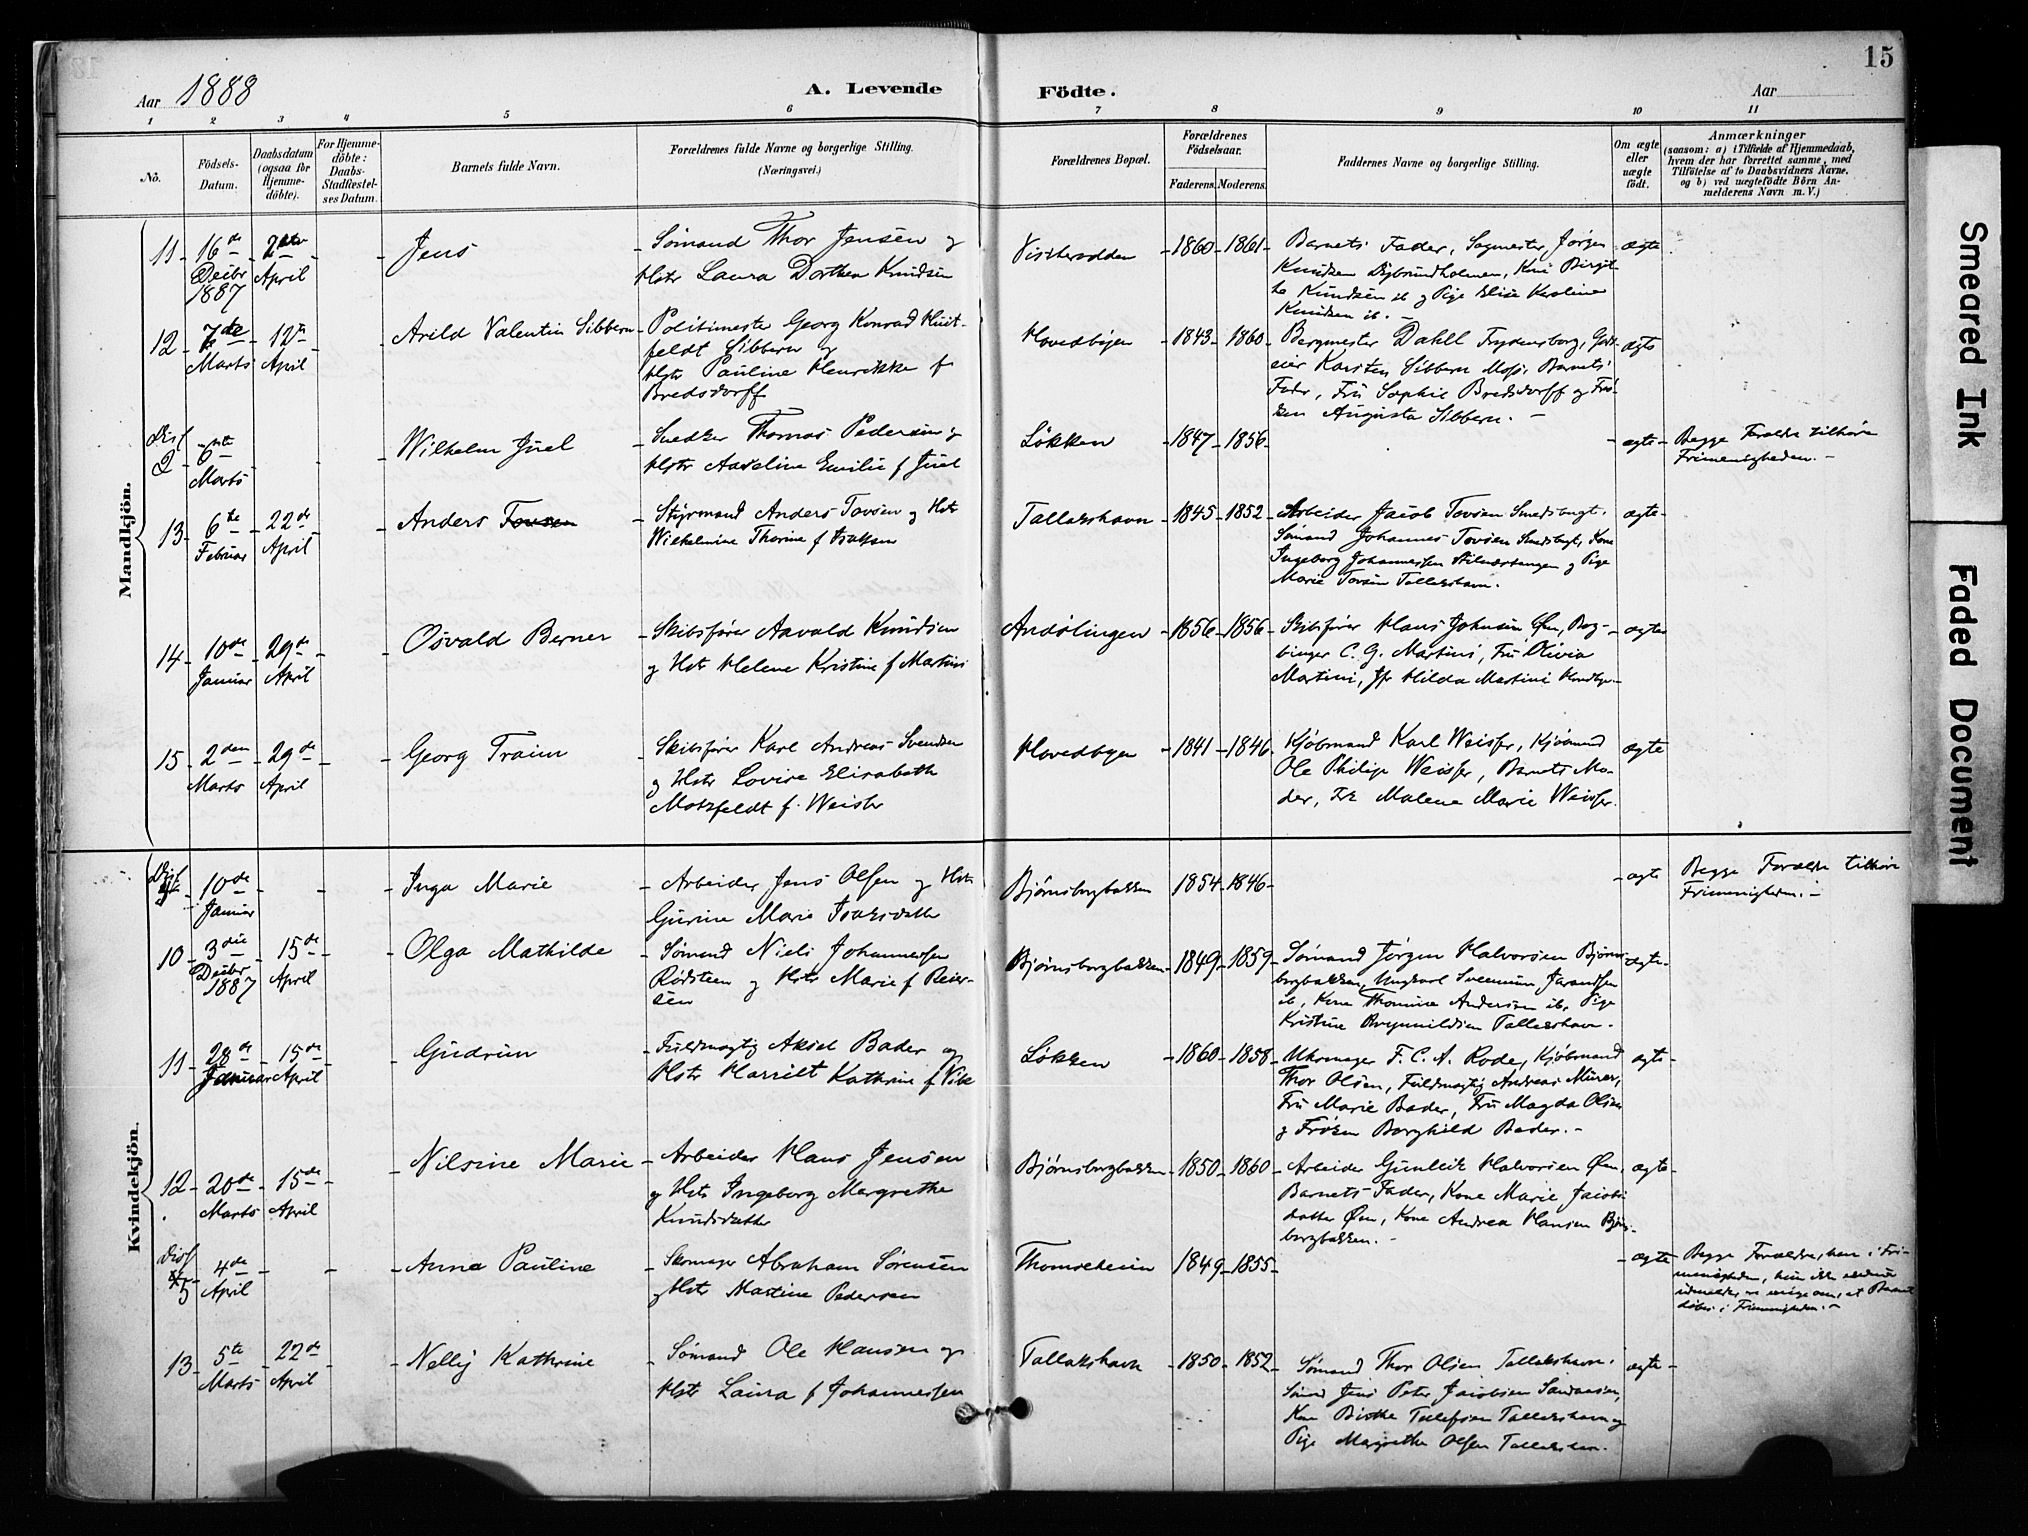 15
Aar 1888
A. Levende Födte.
Aar
1 2 3 4 5 6 7 8 9 10 11
No.
Födsels-Datum.
Daabsdatum (ogsaa för Hjemmedöbte).
For Hjemmedöbte: Daabs-Stadfæstelses Datum.
Barnets fulde Navn.
Forældrenes fulde Navne og borgerlige Stilling.
(Næringsvei.)
Forældrenes Bopæl.
Forældrenes Födselsaar.
Faderens. Moderens.
Faddernes Navne og borgerlige Stilling.
Om ægte eller uægte födt.
Anmærkninger
(saasom: a) i Tilfælde af Hjemmedaab, hvem der har forrettet samme, med Tilföielse af to Daabsvidners Navne, og b) ved uægtefödte Börn Anmelderens Navn m. V.)
Mandkjön.
11 16de Decbr 1887 2den April Jens
Sømand Thor Jensen og
Hstr Laura Dorthea Knudsen
1860 1861
Barnets Fader, Sagmester Jørgen
Knudsen
Knudsen ib. og Pige Elise Karoline
Knudsen ib. ægte
12 7de Marts 12te April Arild Valentin Sibbern
Politimester Georg Konrad Huitfeldt Sibbern og
Hstr Pauline Henrikke f
Bredsdorff
Hovedbyen 1843 1860
Bergmester Dahll Frydensborg,
Karsten Sibbern Moss, Barnets
Fader, Fru Sophie Bredsdorff og Frøken Augusta Sibbern. ægte
Diss 2 6te Marts Wilhelm Juel
Snedker Thomas Pedersen og
Hstr Aaseline Emilie f Juel
Løkken 1847 1856 ægte
Begge Forældre tilhøre
Frimenigheden.
13 6te Februar 22de April Anders Tovsen
Styrmand Anders Tovsen og Hstr
Wilhelmine Thorine f Isaksen
Tallakshavn 1845 1852
Arbeider Jacob Tovsen Smedsbugt,
Sømand Johannes Tovsen Smedsbugt, Kone
Ingeborg Johannessen og Pige
Marie Tovsen Tallakshavn. ægte
14 10de Januar 29de April Osvald Berner
Skibsfører Aavald Knudsen
og Hstr Helene Kristine f Martini
1856 1856
Skibsfører Hans Johnsen Øen, Bogbinger C. G. Martini, Fru Olivia
Martini, Jfr Hilda Martini ægte
15 2den Marts 29de April Georg Traim
Skibsfører Karl Andreas Svendsen
og Hstr Lovise Elisabeth
Motzfeldt f. Weisser
Hovedbyen 1841 1846
Kjøbmand Karl Weisser, Kjøbmand
Ole Philip Weisser, Barnets Moder, Frk Malene Marie Weisser. ægte
Kvindekjön.
Diss 10de Januar Inga Marie
Arbeider Jens Olsen og Hstr
Gurine Marie Isaksdatter
Bjørnsborgbakken 1854 1846 ægte
Begge Forældre tilhøre
Frimenigheden.
10 3die Decbr 1887 15de April Olga Mathilde
Sømand Niels Johannessen
Rødsteen og Hstr Marie f Reiersen
Bjørnsborgbakken 1849 1859
Sømand Jørgen Halvorsen Bjørnsborgbakken, Ungkarl
ib, Kone Thomine Andersen ib, Pige
Kristine Tallakshavn. ægte
11 28de Januar 15de April Gudrun
Fuldmægtig Aksel Bader og
Hstr Harriet Kathrine f Vibe
Løkken 1860 1858
Uhrmager F. C. A. Rode, Kjøbmand
Thor Olsen, Fuldmægtig Andreas Mürer,
Fru Marie Bader, Fru Magda Olsen
og Frøken Borghild Bader. ægte
12 20de Marts 15de April Nilsine Marie
Arbeider Hans Jensen
og Hstr Ingeborg Margrethe
Knudsdatter
Bjørnsborgbakken 1850 1860
Arbeider Gunleik Halvorsen Øen,
Barnets Fader, Kone Marie Jacobsdatter Øen, Kone Andrea Hansen Bjørnsborgbakken. ægte
Diss 5 4de April Anna Pauline
Skomager Abraham Sørensen
og Hstr Martine Pedersen
Thomseheien 1849 1855 ægte
Begge Forældre, han i Frimenigheden, hun ikke endnu
udmeldt, er enige om, at Barnet
døbes i Frimenigheden.
13 5te Marts 22de April Nelly Kathrine
Sømand Ole Hansen og
Hstr Laura f Johannessen
Tallakshavn 1850 1852
Sømand Thor Olsen Tallakshavn.
Sømd Jens Peter Jacobsen
Kone Birthe Tellefsen Tallakshavn og
Pige Margrethe Olsen Tallakshavn. ægte
Smeared Ink
Faded Document